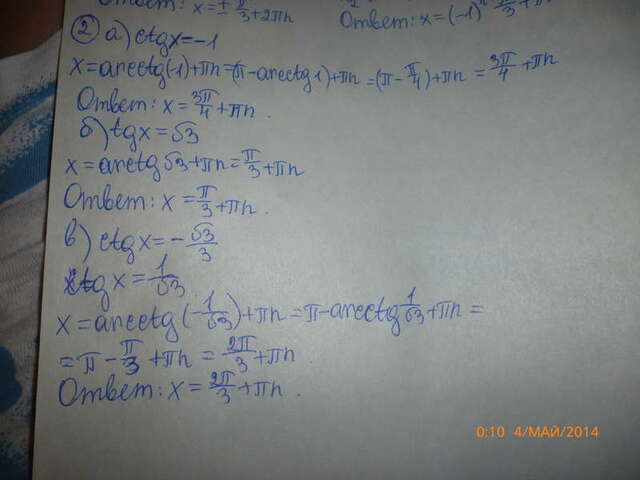 Ответ: x = ± π/3 + 2πn
Ответ: x = (-1)ⁿ π/3 + πn
② а) ctgx = -1
x = arcctg(-1) + πn = (π - arcctg1) + πn = (π - π/4) + πn = 3π/4 + πn
Ответ: x = 3π/4 + πn.
б) tgx = √3
x = arctg√3 + πn = π/3 + πn
Ответ: x = π/3 + πn.
в) ctgx = -√3/3
ctgx = 1/√3
x = arcctg(-1/√3) + πn = π - arcctg 1/√3 + πn =
= π - π/3 + πn = 2π/3 + πn
Ответ: x = 2π/3 + πn.
0:10 4/МАЙ/2014